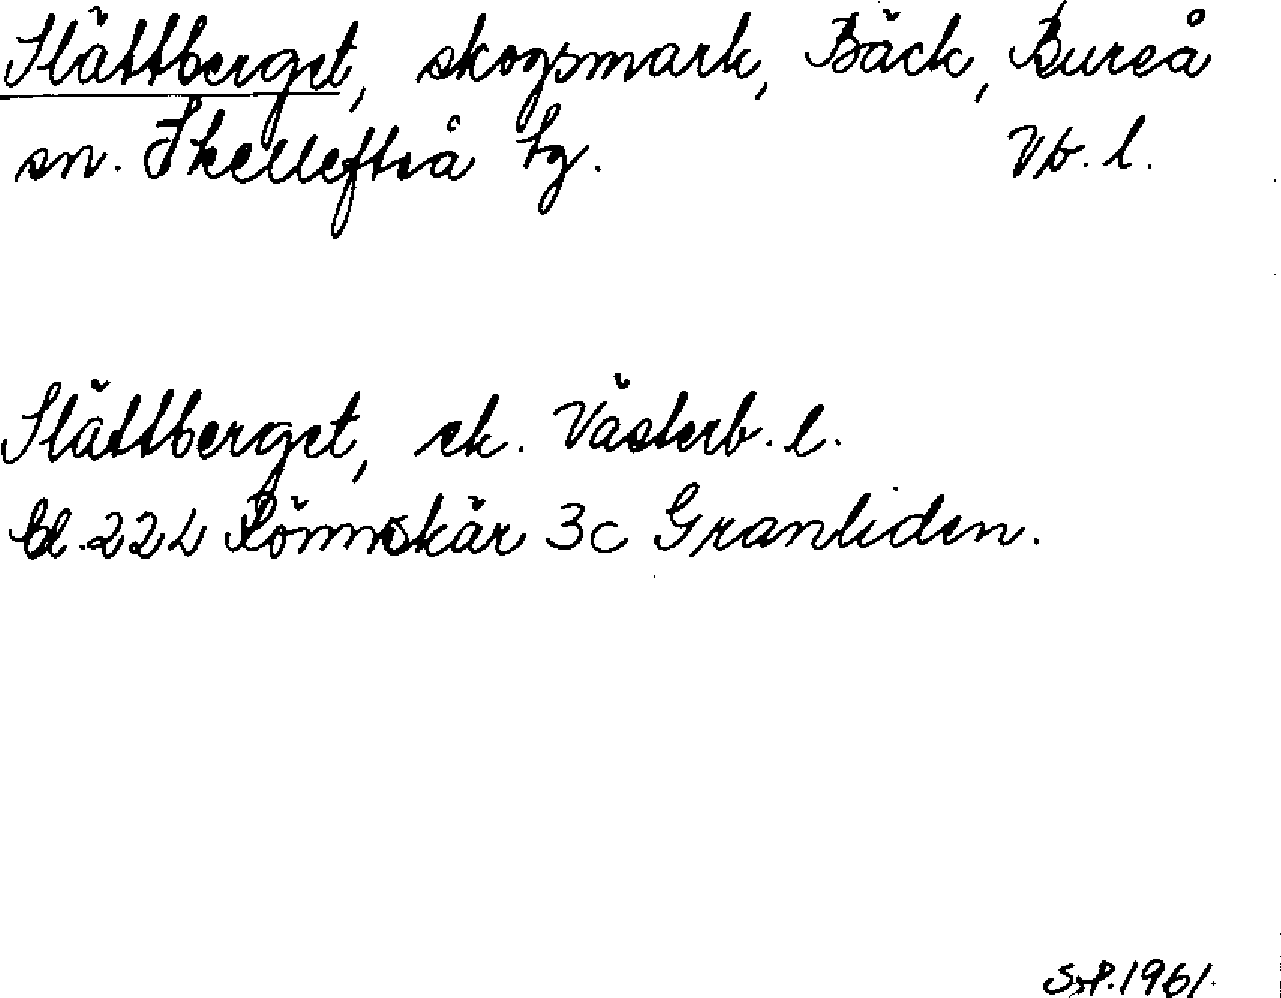 Slättberget, skogsmark, Bäck, Bureå
sn. Skellefteå tg. Vb. l.
Slättberget, ek. Västerb. l.
bl. 22L Rönnskär 3c Granliden.
S.P. 1961.